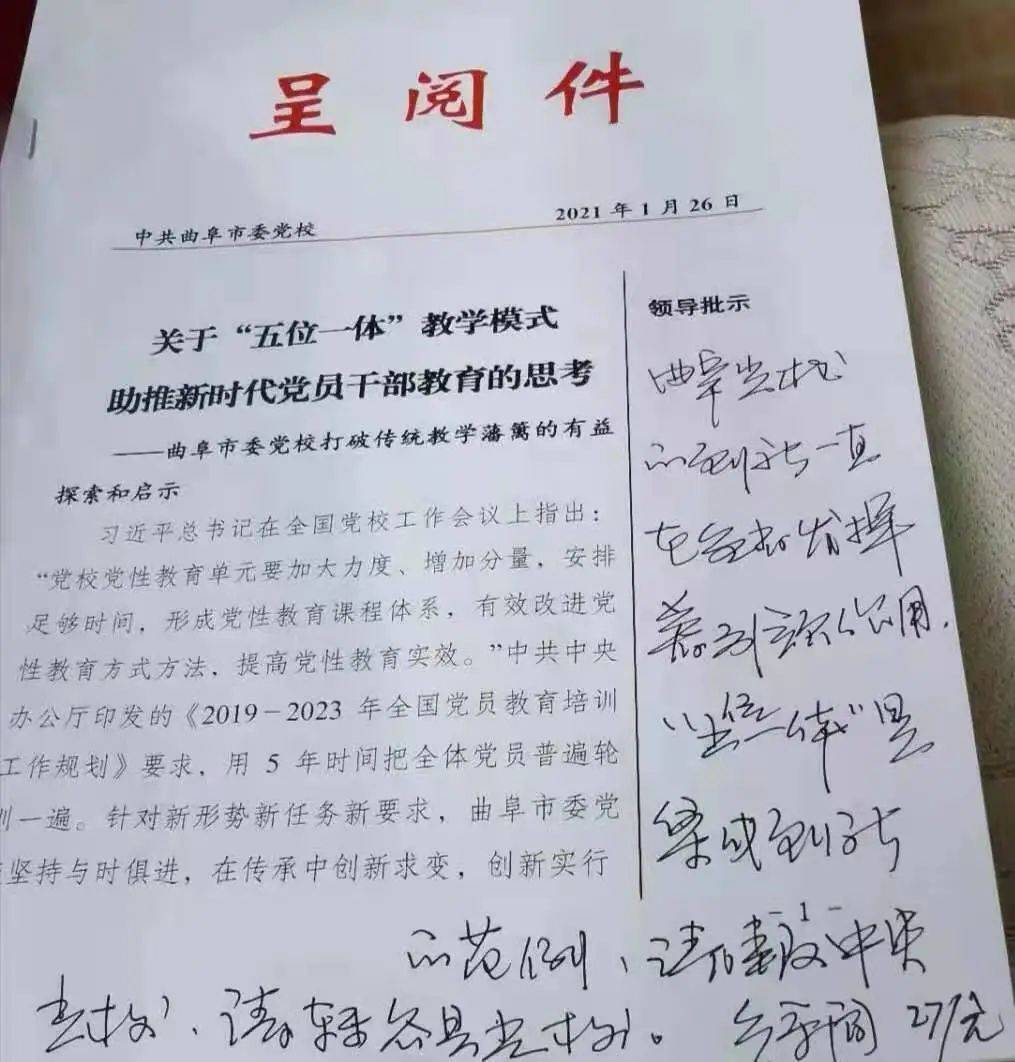 呈阅件
中共曲阜市委党校 2021年1月26日
关于“五位一体”教学模式
助推新时代党员干部教育的思考
——曲阜市委党校打破传统教学藩篱的有益
探索和启示
习近平总书记在全国党校工作会议上指出：
“党校党性教育单元要加大力度、增加分量，安排
足够时间，形成党性教育课程体系，有效改进党
性教育方式方法，提高党性教育实效。”中共中央
办公厅印发的《2019－2023年全国党员教育培训
工作规划》要求，用5年时间把全体党员普遍轮
训一遍。针对新形势新任务新要求，曲阜市委党
坚持与时俱进，在传承中创新求变，创新实行
领导批示
曲阜党校
的创新一直
在全市发挥
着引领作用，
“五位一体”是
集成创新
- 1 -
的范例、请 中央
党校、请转各县党校。 27/元